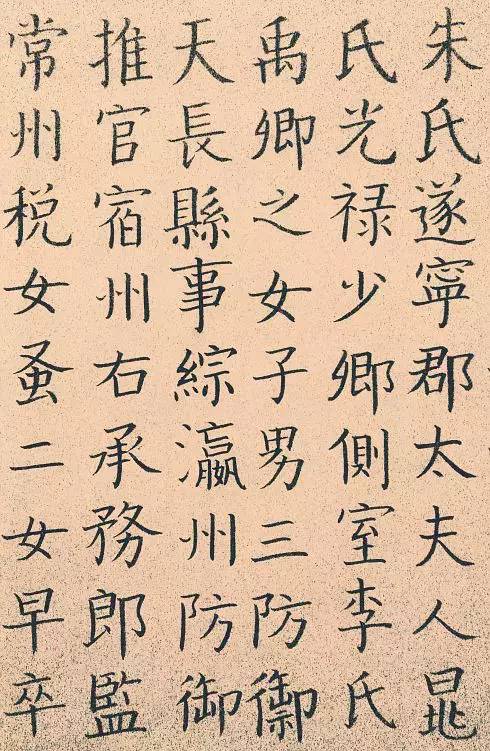 朱氏遂寧郡太夫人晁
氏光禄少卿側室李氏
禹卿之女子男三防禦
天長縣事綜瀛州防御
推官宿州右承務郎監
常州税女蚤二女早卒